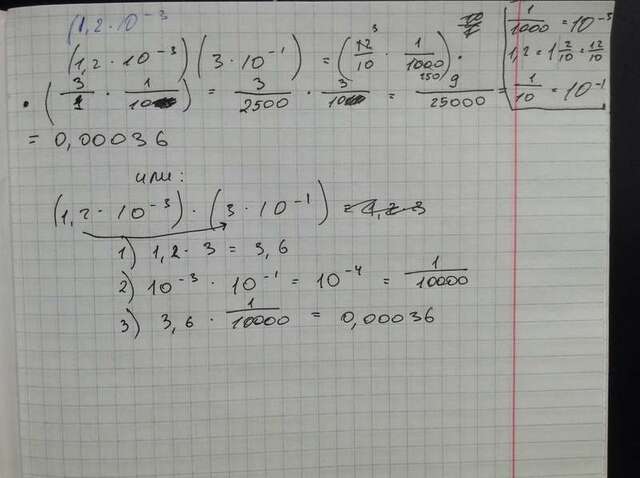 (1,2 · 10⁻³
(1,2 · 10⁻³) (3 · 10⁻¹) = (12/10 · 1/1000) ·
· (3/1 · 1/10) = 3/2500 · 3/10 = 9/25000 =
= 0,00036
1/1000 = 10⁻³
1,2 = 1 2/10 = 12/10
1/10 = 10⁻¹
или:
(1,2 · 10⁻³) · (3 · 10⁻¹)
1) 1,2 · 3 = 3,6
2) 10⁻³ · 10⁻¹ = 10⁻⁴ = 1/10000
3) 3,6 · 1/10000 = 0,00036